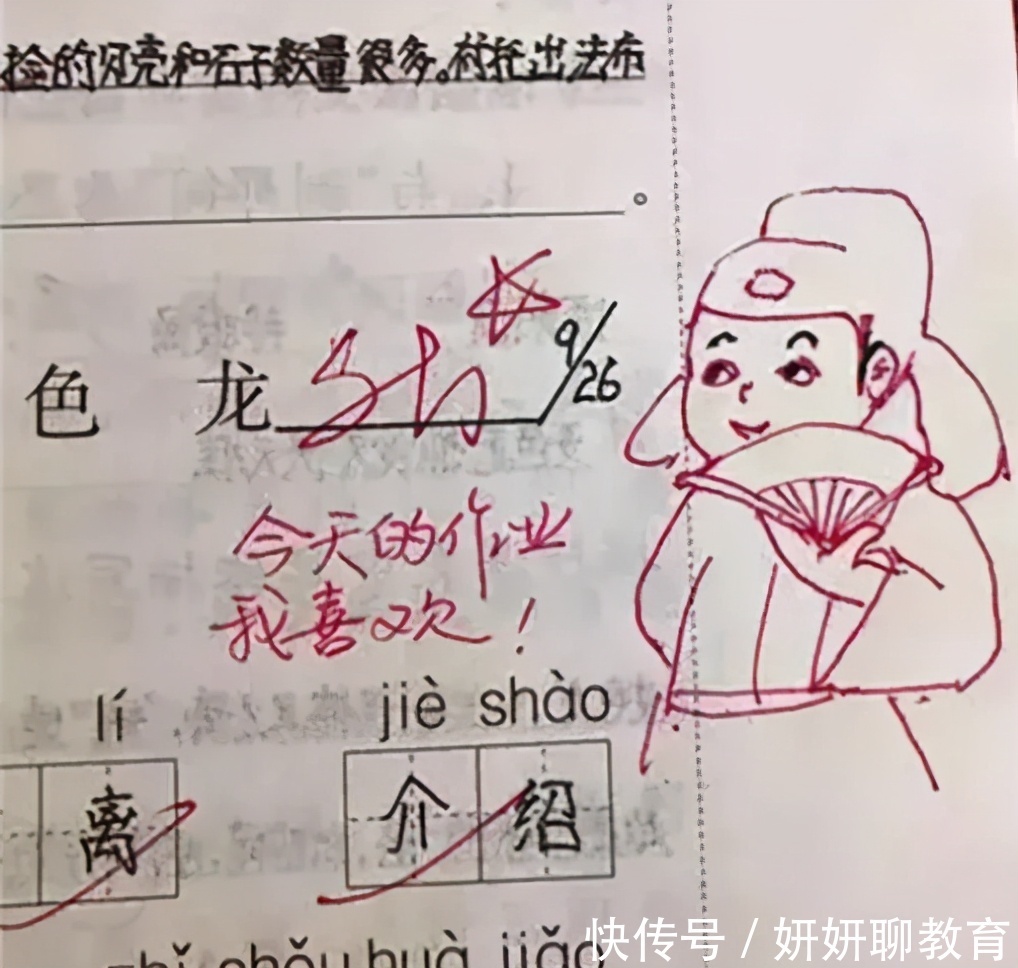 捡的贝壳和石子数量很多。衬托出法布
。
色 龙 9/26
今天的作业
我喜欢！
lí jiè shào
离 介绍
快传号 / 妍妍聊教育